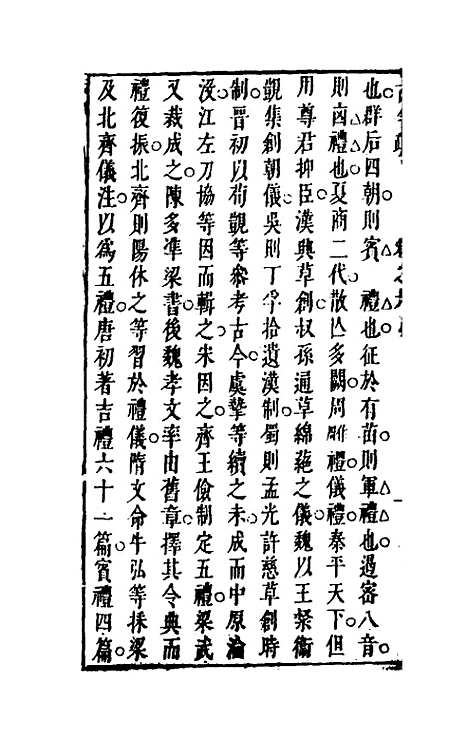 也群后四朝則賓禮也征於有苗則軍禮也遏密八音
則凶禮也夏商二代散亡多闕周雕禮儀禮秦平天下但
用尊君抑臣漢興草創叔孫通草綿蕝之儀魏以王粲衛
觀集創朝儀吳則丁孚拾遺漢制蜀則孟光許慈草創時
制晉初以荀觀等參考古今虞摯等續之未成而中原淪
没江左刀協等因而輯之宋因之齊王儉制定五禮梁武
又裁成之陳多準梁書後魏孝文率由舊章擇其令典而
禮復振北齊則陽休之等習於禮儀隋文命牛弘等採梁
及北齊儀注以爲五禮唐初著吉禮六十一篇賓禮四篇